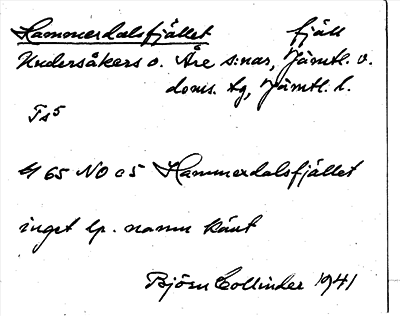 Hammerdalsfjället fjäll
Undersåkers o. Åre s:nar, Jämtl. v.
doms. tg, Jämtl. l.
Ts5
4 65 NO c5 Hammerdalsfjället
inget lp. namn känt
Björn Collinder 1941